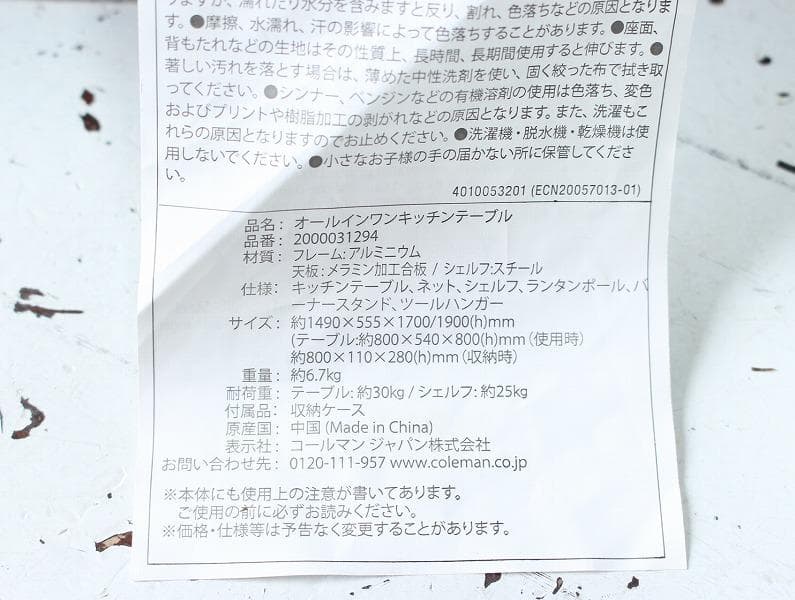 りますが、濡れたり水分を含みますと反り、割れ、色落ちなどの原因となりま
す。●摩擦、水濡れ、汗の影響によって色落ちすることがあります。●座面、
背もたれなどの生地はその性質上、長時間、長期間使用すると伸びます。●
著しい汚れを落とす場合は、薄めた中性洗剤を使い、固く絞った布で拭き取
ってください。●シンナー、ベンジンなどの有機溶剤の使用は色落ち、変色
およびプリントや樹脂加工の剥がれなどの原因となります。また、洗濯もこ
れらの原因となりますのでお止めください。●洗濯機・脱水機・乾燥機は使
用しないでください。●小さなお子様の手の届かない所に保管してくださ
い。
4010053201 (ECN20057013-01)
品名： オールインワンキッチンテーブル
品番： 2000031294
材質： フレーム：アルミニウム
天板：メラミン加工合板 / シェルフ：スチール
仕様： キッチンテーブル、ネット、シェルフ、ランタンポール、バ
ーナースタンド、ツールハンガー
サイズ： 約1490×555×1700/1900(h)mm
(テーブル：約800×540×800(h)mm（使用時）
約800×110×280(h)mm（収納時）
重量： 約6.7kg
耐荷重： テーブル：約30kg / シェルフ：約25kg
付属品： 収納ケース
原産国： 中国 (Made in China)
表示社： コールマン ジャパン株式会社
お問い合わせ先： 0120-111-957 www.coleman.co.jp
※本体にも使用上の注意が書いてあります。
ご使用の前に必ずお読みください。
※価格・仕様等は予告なく変更することがあります。